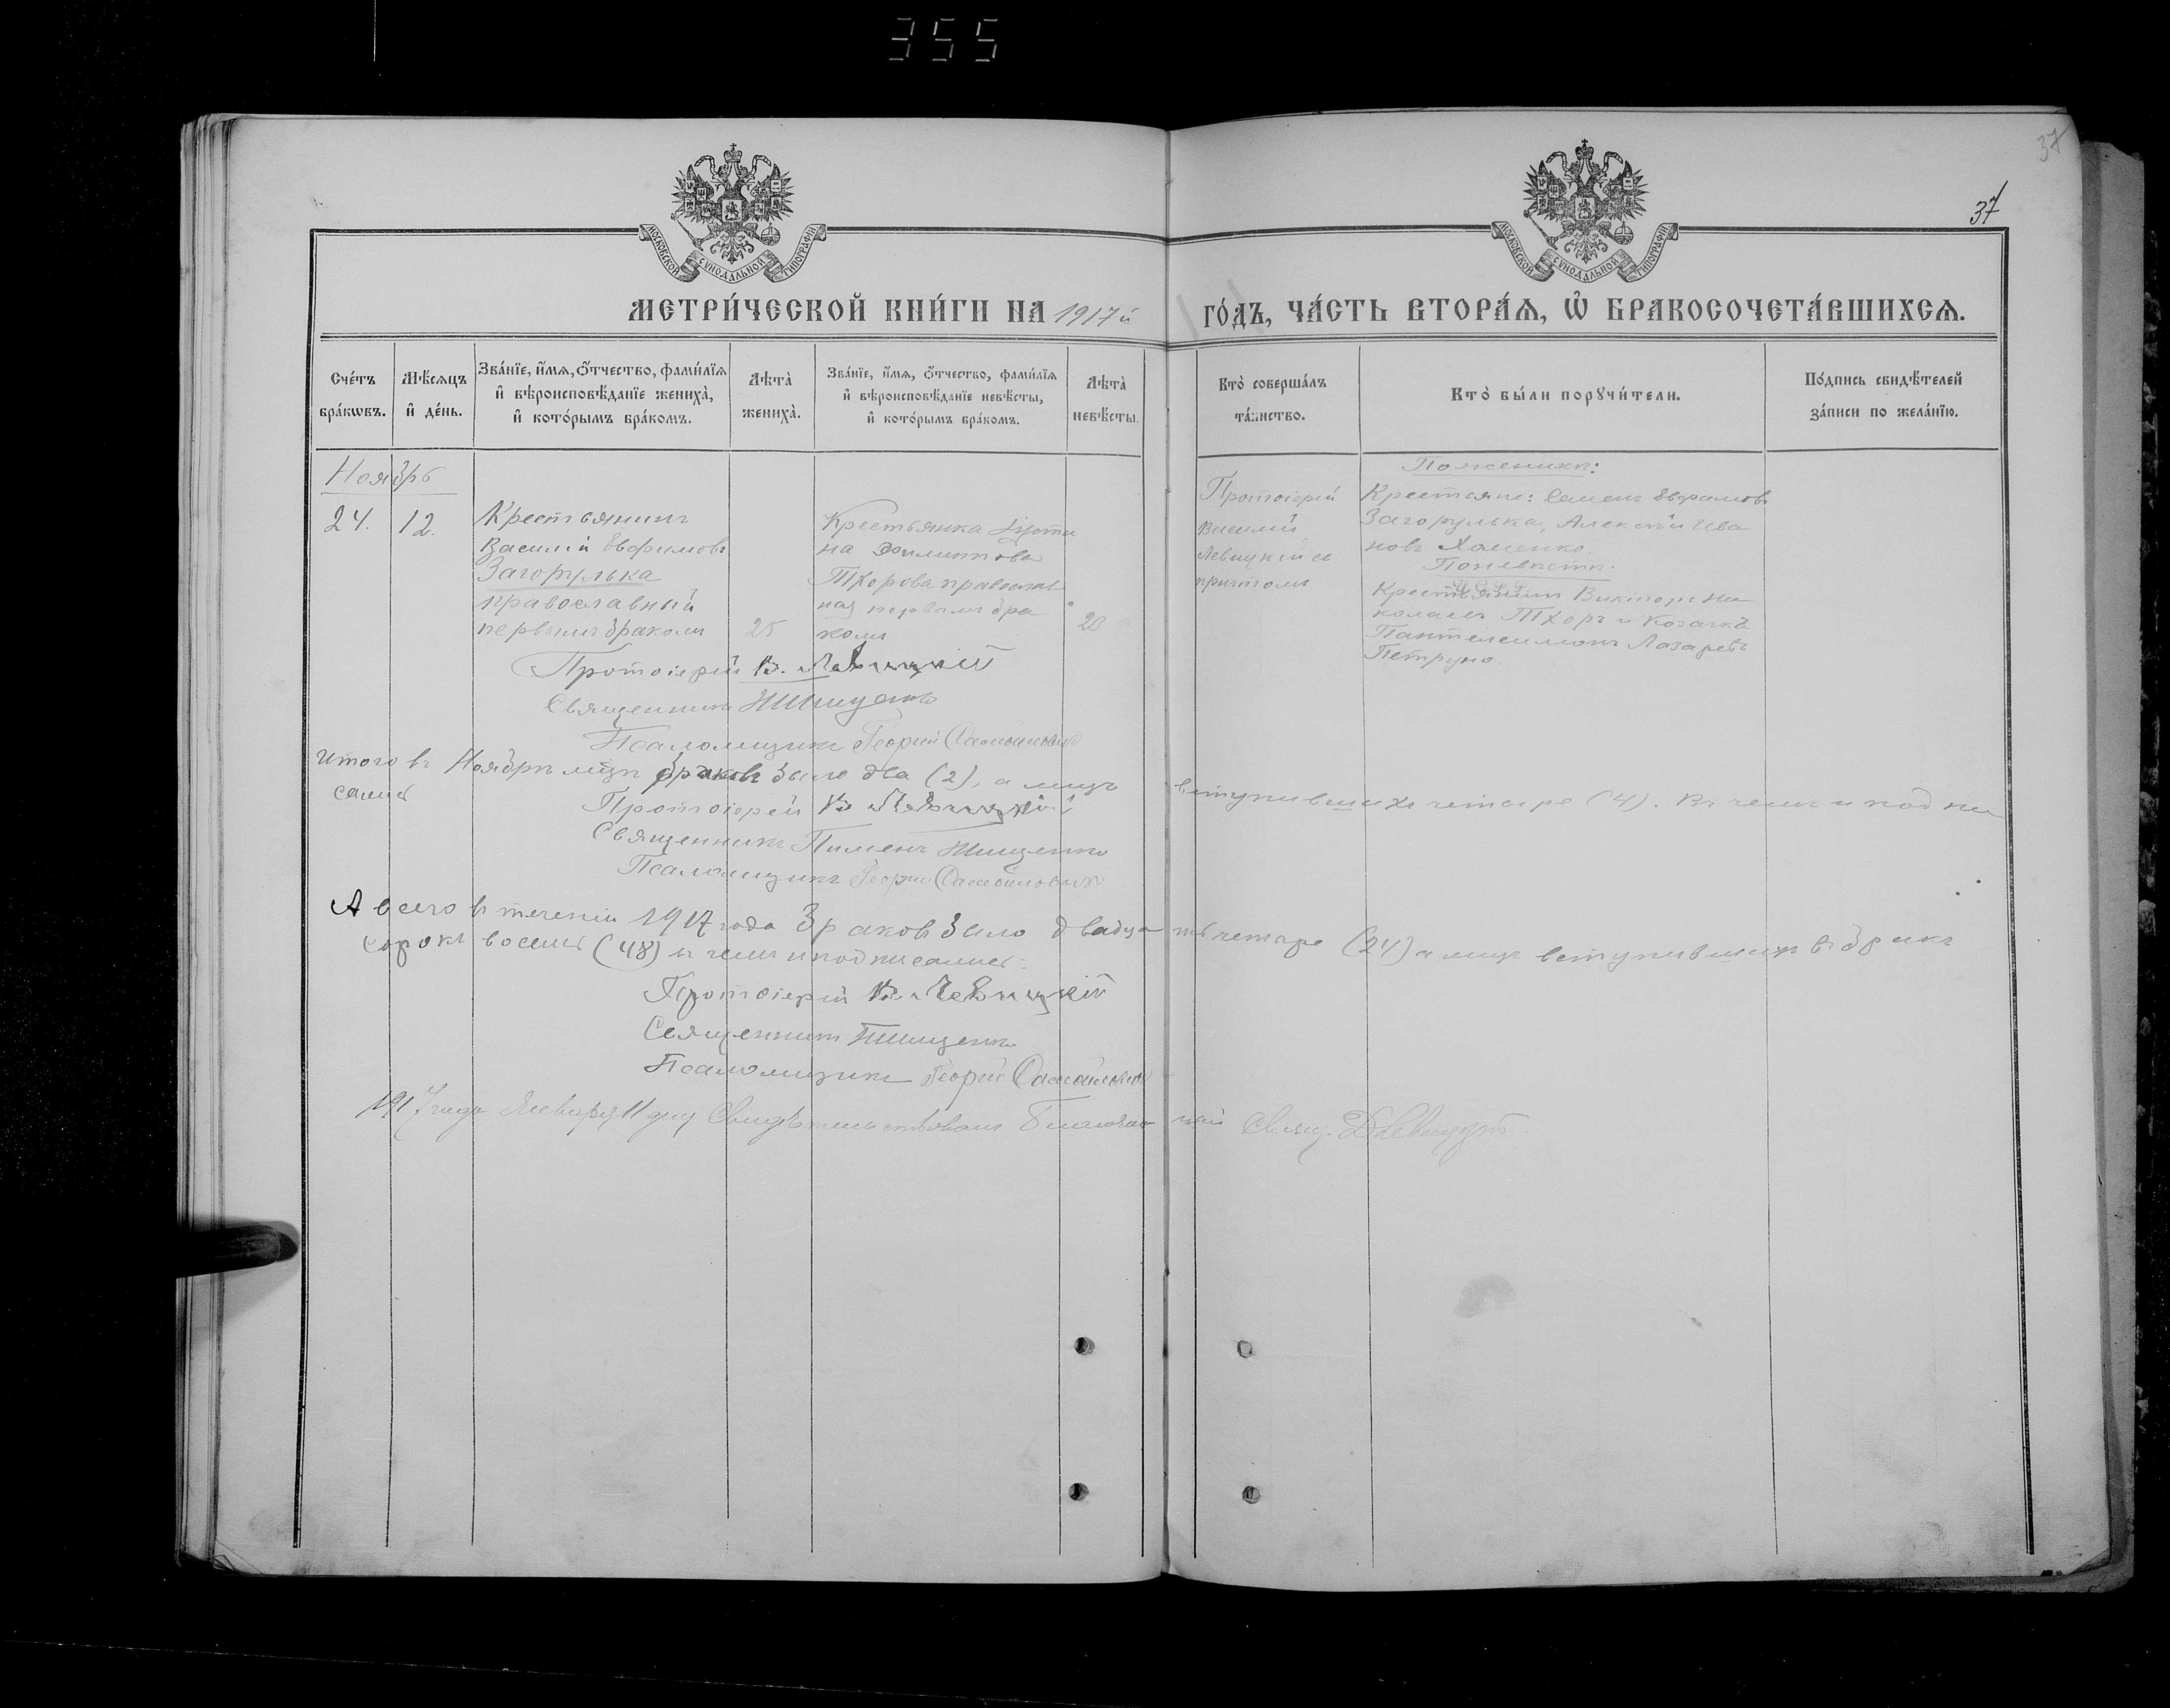 355
37
37
МОСКОВСКОЙ СѴНОДАЛЬНОЙ ТИПОГРАФІИ
МОСКОВСКОЙ СѴНОДАЛЬНОЙ ТИПОГРАФІИ
МЕТРИ́ЧЕСКОЙ КНИ́ГИ НА 1917й ГО́ДЪ, ЧА́СТЬ ВТОРА́Ѧ, Ѡ҆ БРАКОСОЧЕТА́ВШИХСѦ.
Сче́тъ бра́кѡвъ.
Мѣ́сѧцъ и҆ де́нь.
Зва́нїе, и҆́мѧ, ѻ҆́тчество, фами́лїѧ и҆ вѣроисповѣ́данїе жениха̀, и҆ кото́рымъ бра́комъ.
Лѣта̀ жениха̀.
Зва́нїе, и҆́мѧ, ѻ҆́тчество, фами́лїѧ и҆ вѣроисповѣ́данїе невѣ́сты, и҆ кото́рымъ бра́комъ.
Лѣта̀ невѣ́сты.
Кто̀ соверша́лъ та́инство.
Кто̀ бы́ли порꙋчи́тели.
По́дпись свидѣ́телей за́писи по жела́нїю.
Ноябрь
24. 12.
Крестьянинъ
Василій Евфимовъ
Загорулька
православный
первымъ бракомъ
25
Крестьянка
на Филиппова
Тхорова православ
ная первымъ бра
комъ
20
Протоіерей
Василій
Левицкій съ
причтомъ
По женихѣ:
Крестьяне: Семенъ Евфимовъ
Загорулька, Алексѣй Ива
новъ Хоменко.
По невѣстѣ:
Крестьянинъ Викторъ Ни
колаевъ Тхоръ и Козакъ
Пантелеимонъ Лазаревъ
Петруно.
Протоіерей В. Левицкій
Священникъ
Псаломщикъ Георгій Самойловичъ
Итого въ Ноябрѣ мѣсцѣ браковъ было два (2), а лицъ вступившихъ четыре (4). Въ чемъ и подпи
сались
Протоіерей В. Левицкій
Священникъ Пименъ
Псаломщикъ Георгій Самойловичъ
А всего въ теченіи 1917 года браковъ было двадцать четыре (24) а лицъ вступившихъ въ бракъ
сорокъ восемь (48) въ чемъ и подписались:
Протоіерей В. Левицкій
Священникъ
Псаломщикъ Георгій Самойловичъ
1917 года Января 11 дня Свидѣтельствовалъ Благочинный Свящ.